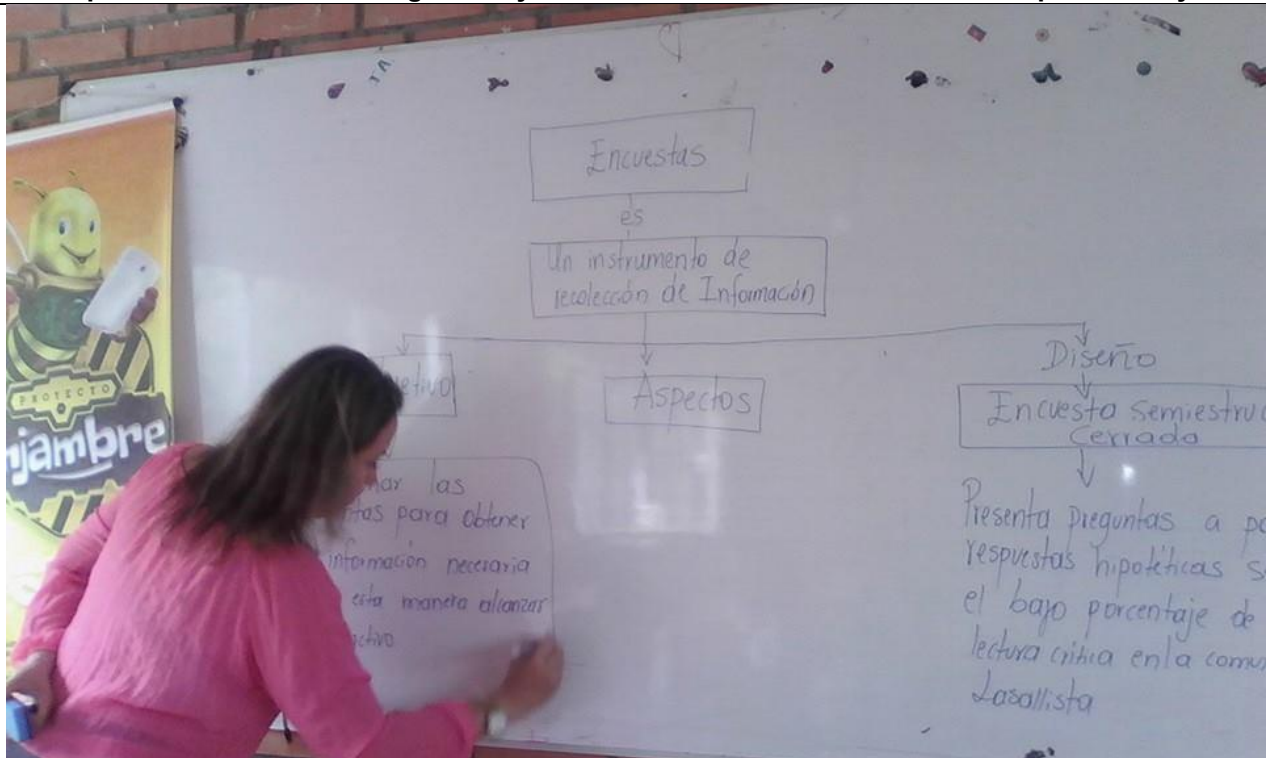 PROYECTO
jambre
Encuestas
es
Un instrumento de
recolección de Información
etivo
Aspectos
Diseño
Encuesta semiestruc
Cerrada
las
para obtener
información necesaria
esta manera alcanzar
Presenta preguntas a
respuestas hipotéticas
el bajo porcentaje de
lectura crítica en la comun
Lasallista